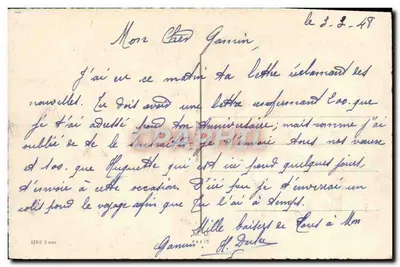 le 3-2-48
Mon Cher Gamin,
J'ai eu ce matin ta lettre réclamant des
nouvelles. Tu dois avoir une lettre renfermant 200. que
je t'ai adressé pour ton anniversaire; mais comme j'ai
oublié de te je envoie tous nos vœux
et 100. que Huguette qui est ici pour quelques jours
t'envoie à cette occasion. D'ici peu je t'enverai un
colis pour le voyage afin que tu l'ai à temps.
Mille baisers de tous à Mon
Gamin.
PARIS